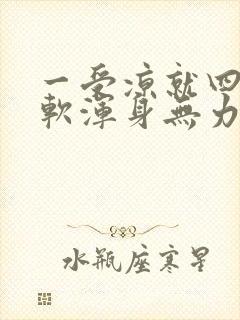 一受凉就四
軟渾身無力
水瓶座寒星